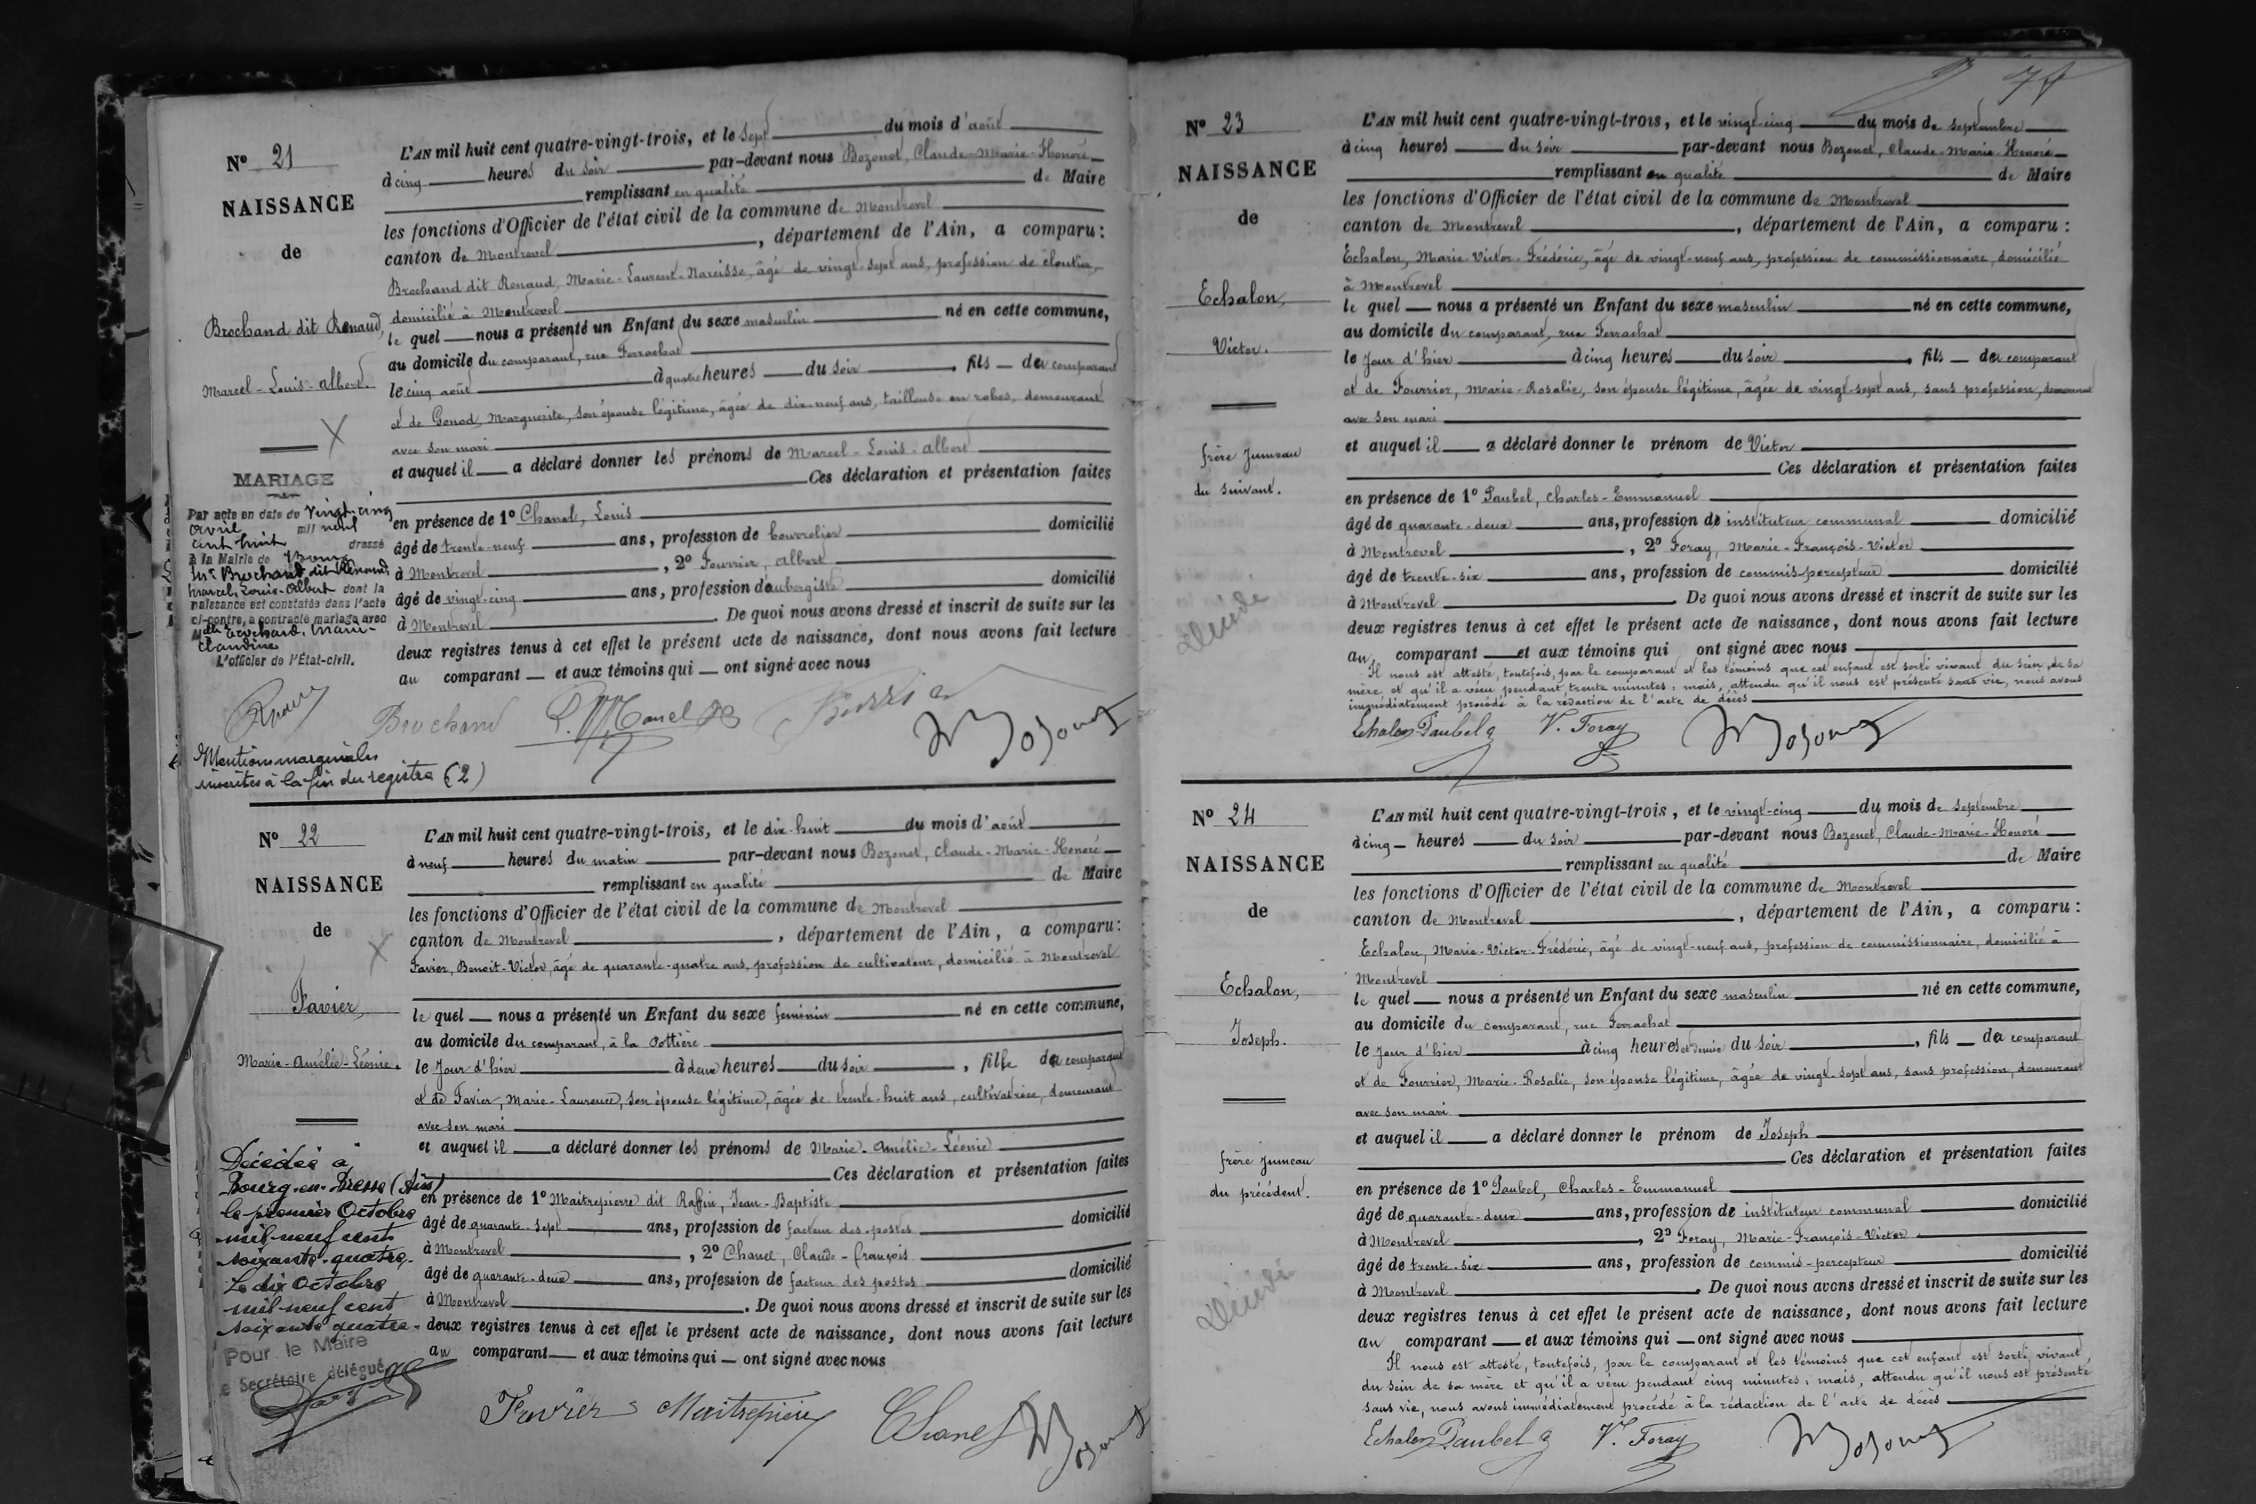 Nº 21
NAISSANCE
de
Brochand dit Renaud,
Marcel-Louis-Albert.
MARIAGE
Par acte en date du vingt-cinq
avril mil neuf
cent huit dressé
à la Mairie de
Mr Brochand dit Renaud
Marcel, Louis-Albert dont la
naissance est constatée dans l'acte
ci-contre, a contracté mariage avec
Melle Marie-
Claudine
L'officier de l'État-civil.
Mentions marginales
inscrites à la fin du registre (2)
L'AN mil huit cent quatre-vingt-trois, et le sept du mois d'août
à cinq heures du soir par-devant nous Bozonet, Claude-Marie-Honoré
remplissant en qualité de Maire
les fonctions d'Officier de l'état civil de la commune de Montrevel
canton de Montrevel, département de l'Ain, a comparu:
Brochand dit Renaud, Marie-Laurent-Narcisse, âgé de vingt-sept ans, profession de cloutier,
domicilié à Montrevel
le quel nous a présenté un Enfant du sexe masculin né en cette commune,
au domicile du comparant, rue Ferrachat
le cinq août à quatre heures du soir, fils du comparant
et de Gonod, Marguerite, son épouse légitime, âgée de dix-neuf ans, tailleuse en robes, demeurant
avec son mari
et auquel il a déclaré donner les prénoms de Marcel-Louis-Albert
Ces déclaration et présentation faites
en présence de 1º Chanel, Louis
âgé de trente-neuf ans, profession de bourrelier domicilié
à Montrevel, 2º Fourrier, Albert
âgé de vingt-cinq ans, profession d'aubergiste domicilié
à Montrevel. De quoi nous avons dressé et inscrit de suite sur les
deux registres tenus à cet effet le présent acte de naissance, dont nous avons fait lecture
au comparant et aux témoins qui ont signé avec nous
Brochand
Nº 22
NAISSANCE
de
Favier,
Marie-Amélie-Léonie.
Décédée à
Bourg-en-Bresse (Ain)
le premier Octobre
mil neuf cent
soixante-quatre.
Le dix Octobre
mil neuf cent
soixante quatre.
Pour le Maire
le Secrétaire délégué
L'AN mil huit cent quatre-vingt-trois, et le dix-huit du mois d'août
à neuf heures du matin par-devant nous Bozonet, Claude-Marie-Honoré
remplissant en qualité de Maire
les fonctions d'Officier de l'état civil de la commune de Montrevel
canton de Montrevel, département de l'Ain, a comparu:
Favier, Benoît-Victor, âgé de quarante-quatre ans, profession de cultivateur, domicilié à Montrevel
le quel nous a présenté un Enfant du sexe féminin né en cette commune,
au domicile du comparant, à la Pottière
le jour d'hier à deux heures du soir, fille du comparant
et de Favier, Marie-Laurence, son épouse légitime, âgée de trente-huit ans, cultivatrice, demeurant
avec son mari
et auquel il a déclaré donner les prénoms de Marie-Amélie-Léonie
Ces déclaration et présentation faites
en présence de 1º Maitrepierre dit Raffin, Jean-Baptiste
âgé de quarante-sept ans, profession de facteur des postes domicilié
à Montrevel, 2º Chanel, Claude-François
âgé de quarante-deux ans, profession de facteur des postes domicilié
à Montrevel. De quoi nous avons dressé et inscrit de suite sur les
deux registres tenus à cet effet le présent acte de naissance, dont nous avons fait lecture
au comparant et aux témoins qui ont signé avec nous
Favier Maitrepierre Chanel Bozonet
74
Nº 23
NAISSANCE
de
Echalon,
Victor.
frère jumeau
du suivant.
Décédé
L'AN mil huit cent quatre-vingt-trois, et le vingt-cinq du mois de septembre
à cinq heures du soir par-devant nous Bozonet, Claude-Marie-Honoré
remplissant en qualité de Maire
les fonctions d'Officier de l'état civil de la commune de Montrevel
canton de Montrevel, département de l'Ain, a comparu:
Echalon, Marie-Victor-Frédéric, âgé de vingt-neuf ans, profession de commissionnaire, domicilié
à Montrevel
le quel nous a présenté un Enfant du sexe masculin né en cette commune,
au domicile du comparant, rue Ferrachat
le jour d'hier à cinq heures du soir, fils du comparant
et de Fourrier, Marie-Rosalie, son épouse légitime, âgée de vingt-sept ans, sans profession, demeurant
avec son mari
et auquel il a déclaré donner le prénom de Victor
Ces déclaration et présentation faites
en présence de 1º Paubel, Charles-Emmanuel
âgé de quarante-deux ans, profession de instituteur communal domicilié
à Montrevel, 2º Foray, Marie-François-Victor
âgé de trente-six ans, profession de commis-percepteur domicilié
à Montrevel. De quoi nous avons dressé et inscrit de suite sur les
deux registres tenus à cet effet le présent acte de naissance, dont nous avons fait lecture
au comparant et aux témoins qui ont signé avec nous
Il nous est attesté, toutefois, par le comparant et les témoins que cet enfant est sorti vivant du sein de sa
mère et qu'il a vécu pendant trente minutes; mais, attendu qu'il nous est présenté sans vie, nous avons
immédiatement procédé à la rédaction de l'acte de décès
Echalon Paubel V. Foray Bozonet
Nº 24
NAISSANCE
de
Echalon,
Joseph.
frère jumeau
du précédent.
Décédé
L'AN mil huit cent quatre-vingt-trois, et le vingt-cinq du mois de septembre
à cinq heures du soir par-devant nous Bozonet, Claude-Marie-Honoré
remplissant en qualité de Maire
les fonctions d'Officier de l'état civil de la commune de Montrevel
canton de Montrevel, département de l'Ain, a comparu:
Echalon, Marie-Victor-Frédéric, âgé de vingt-neuf ans, profession de commissionnaire, domicilié à
Montrevel
le quel nous a présenté un Enfant du sexe masculin né en cette commune,
au domicile du comparant, rue Ferrachat
le jour d'hier à cinq heures et demie du soir, fils du comparant
et de Fourrier, Marie-Rosalie, son épouse légitime, âgée de vingt-sept ans, sans profession, demeurant
avec son mari
et auquel il a déclaré donner le prénom de Joseph
Ces déclaration et présentation faites
en présence de 1º Paubel, Charles-Emmanuel
âgé de quarante-deux ans, profession de instituteur communal domicilié
à Montrevel, 2º Foray, Marie-François-Victor
âgé de trente-six ans, profession de commis-percepteur domicilié
à Montrevel. De quoi nous avons dressé et inscrit de suite sur les
deux registres tenus à cet effet le présent acte de naissance, dont nous avons fait lecture
au comparant et aux témoins qui ont signé avec nous
Il nous est attesté, toutefois, par le comparant et les témoins que cet enfant est sorti vivant
du sein de sa mère et qu'il a vécu pendant cinq minutes; mais, attendu qu'il nous est présenté
sans vie, nous avons immédiatement procédé à la rédaction de l'acte de décès
Echalon Paubel V. Foray Bozonet